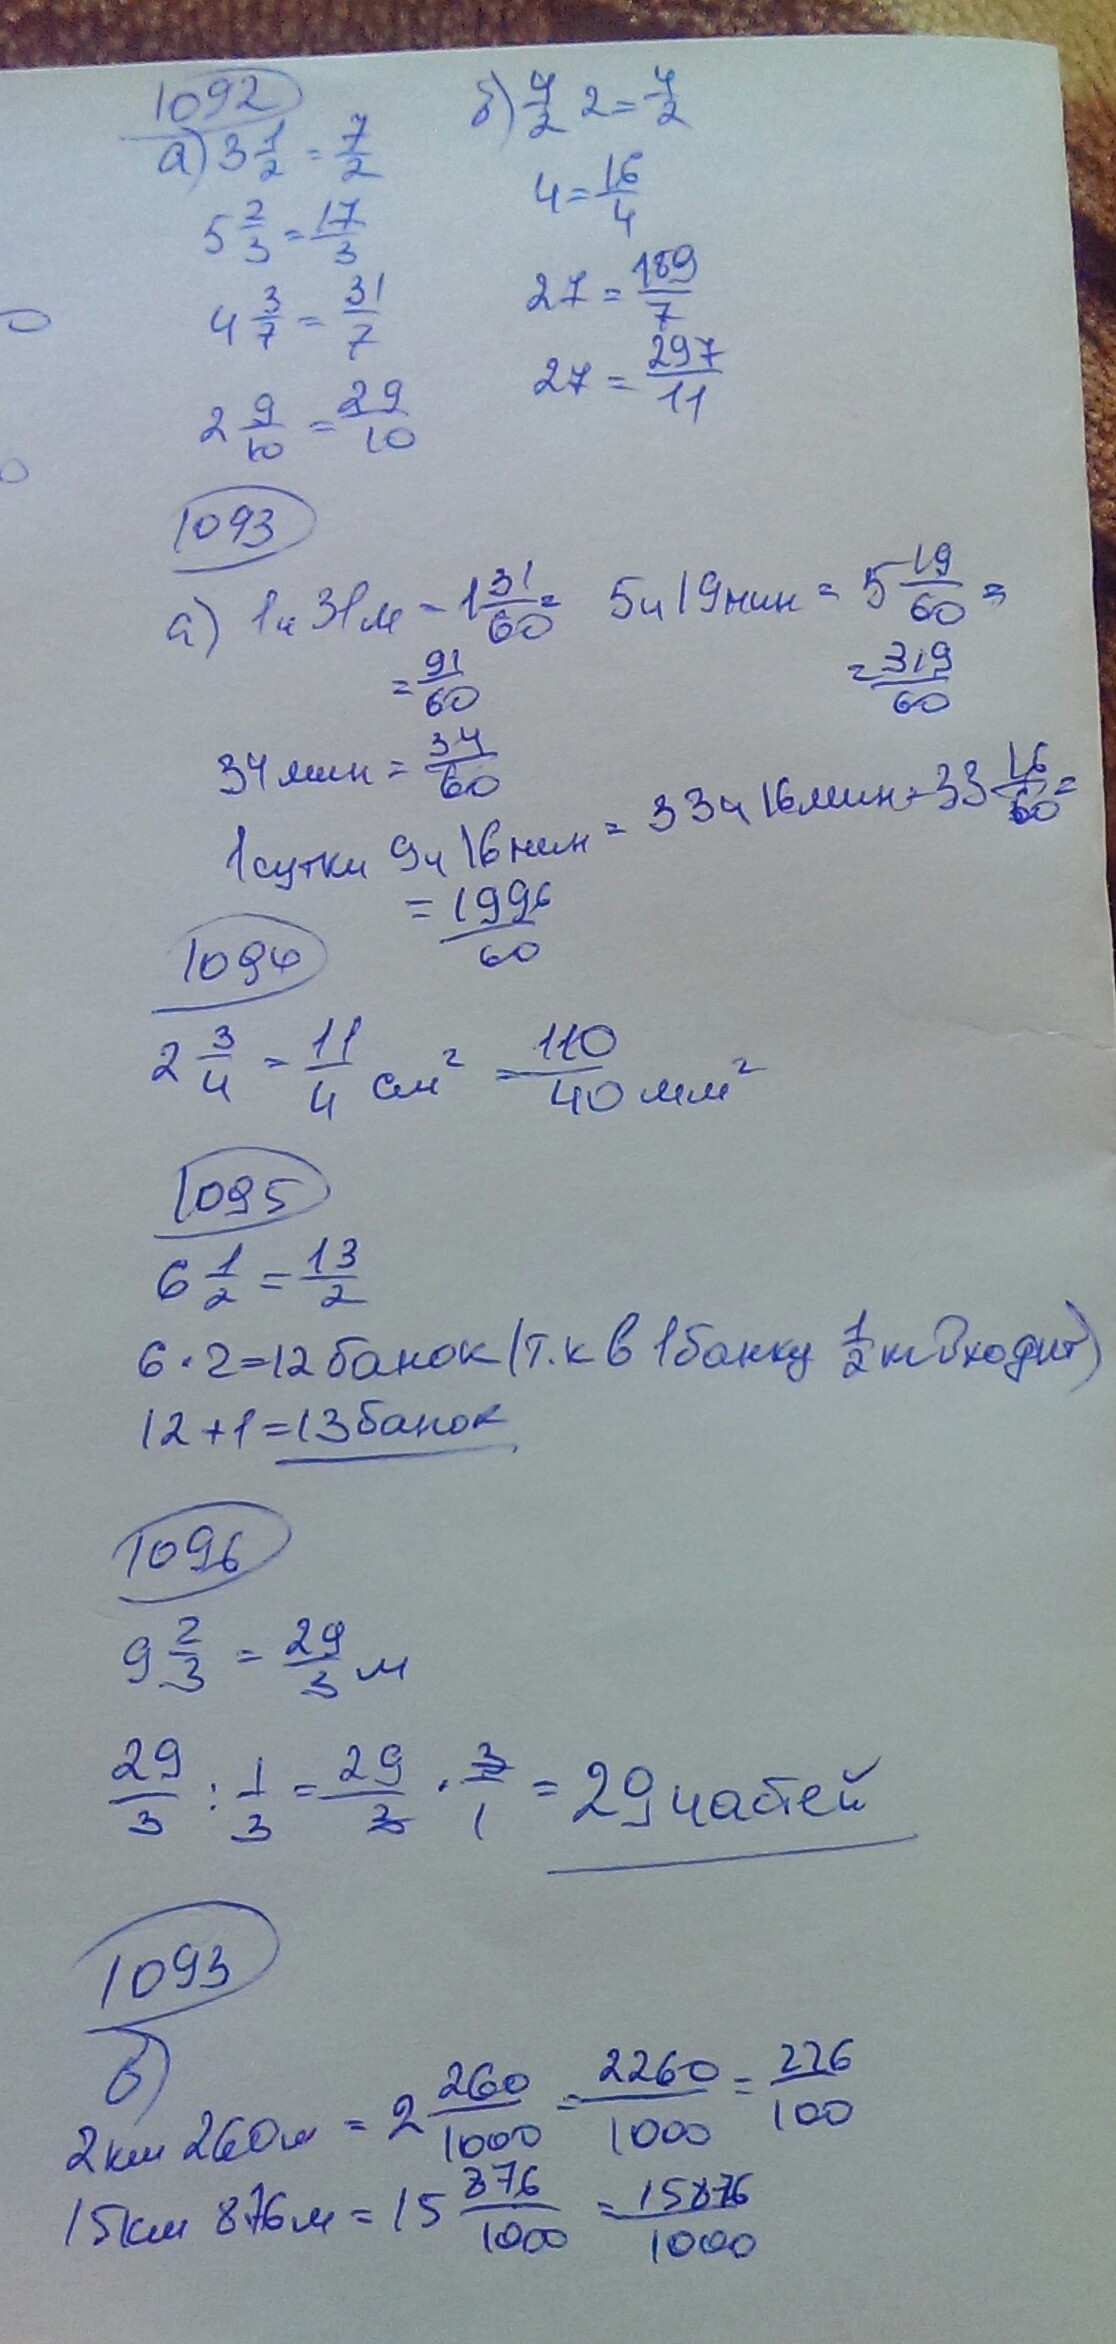 1092
а) 3 1/2 = 7/2
5 2/3 = 17/3
4 3/7 = 31/7
2 9/10 = 29/10
б) 4/2 2 = 4/2
4 = 16/4
27 = 189/7
27 = 297/11
1093
а) 1ч 31м = 1 31/60 =
= 91/60
5ч 19мин = 5 19/60 =
= 319/60
34мин = 34/60
1сутки 9ч 16мин = 33ч 16мин = 33 16/60 =
= 1996/60
1094
2 3/4 = 11/4 см² = 110/40 мм²
1095
6 1/2 = 13/2
6 · 2 = 12 банок (т.к в 1 банку 1/2 кг входит)
12 + 1 = 13 банок
1096
9 2/3 = 29/3 м
29/3 : 1/3 = 29/3 · 3/1 = 29 частей
1093
б)
2км 260м = 2 260/1000 = 2260/1000 = 226/100
15км 876м = 15 876/1000 = 15876/1000